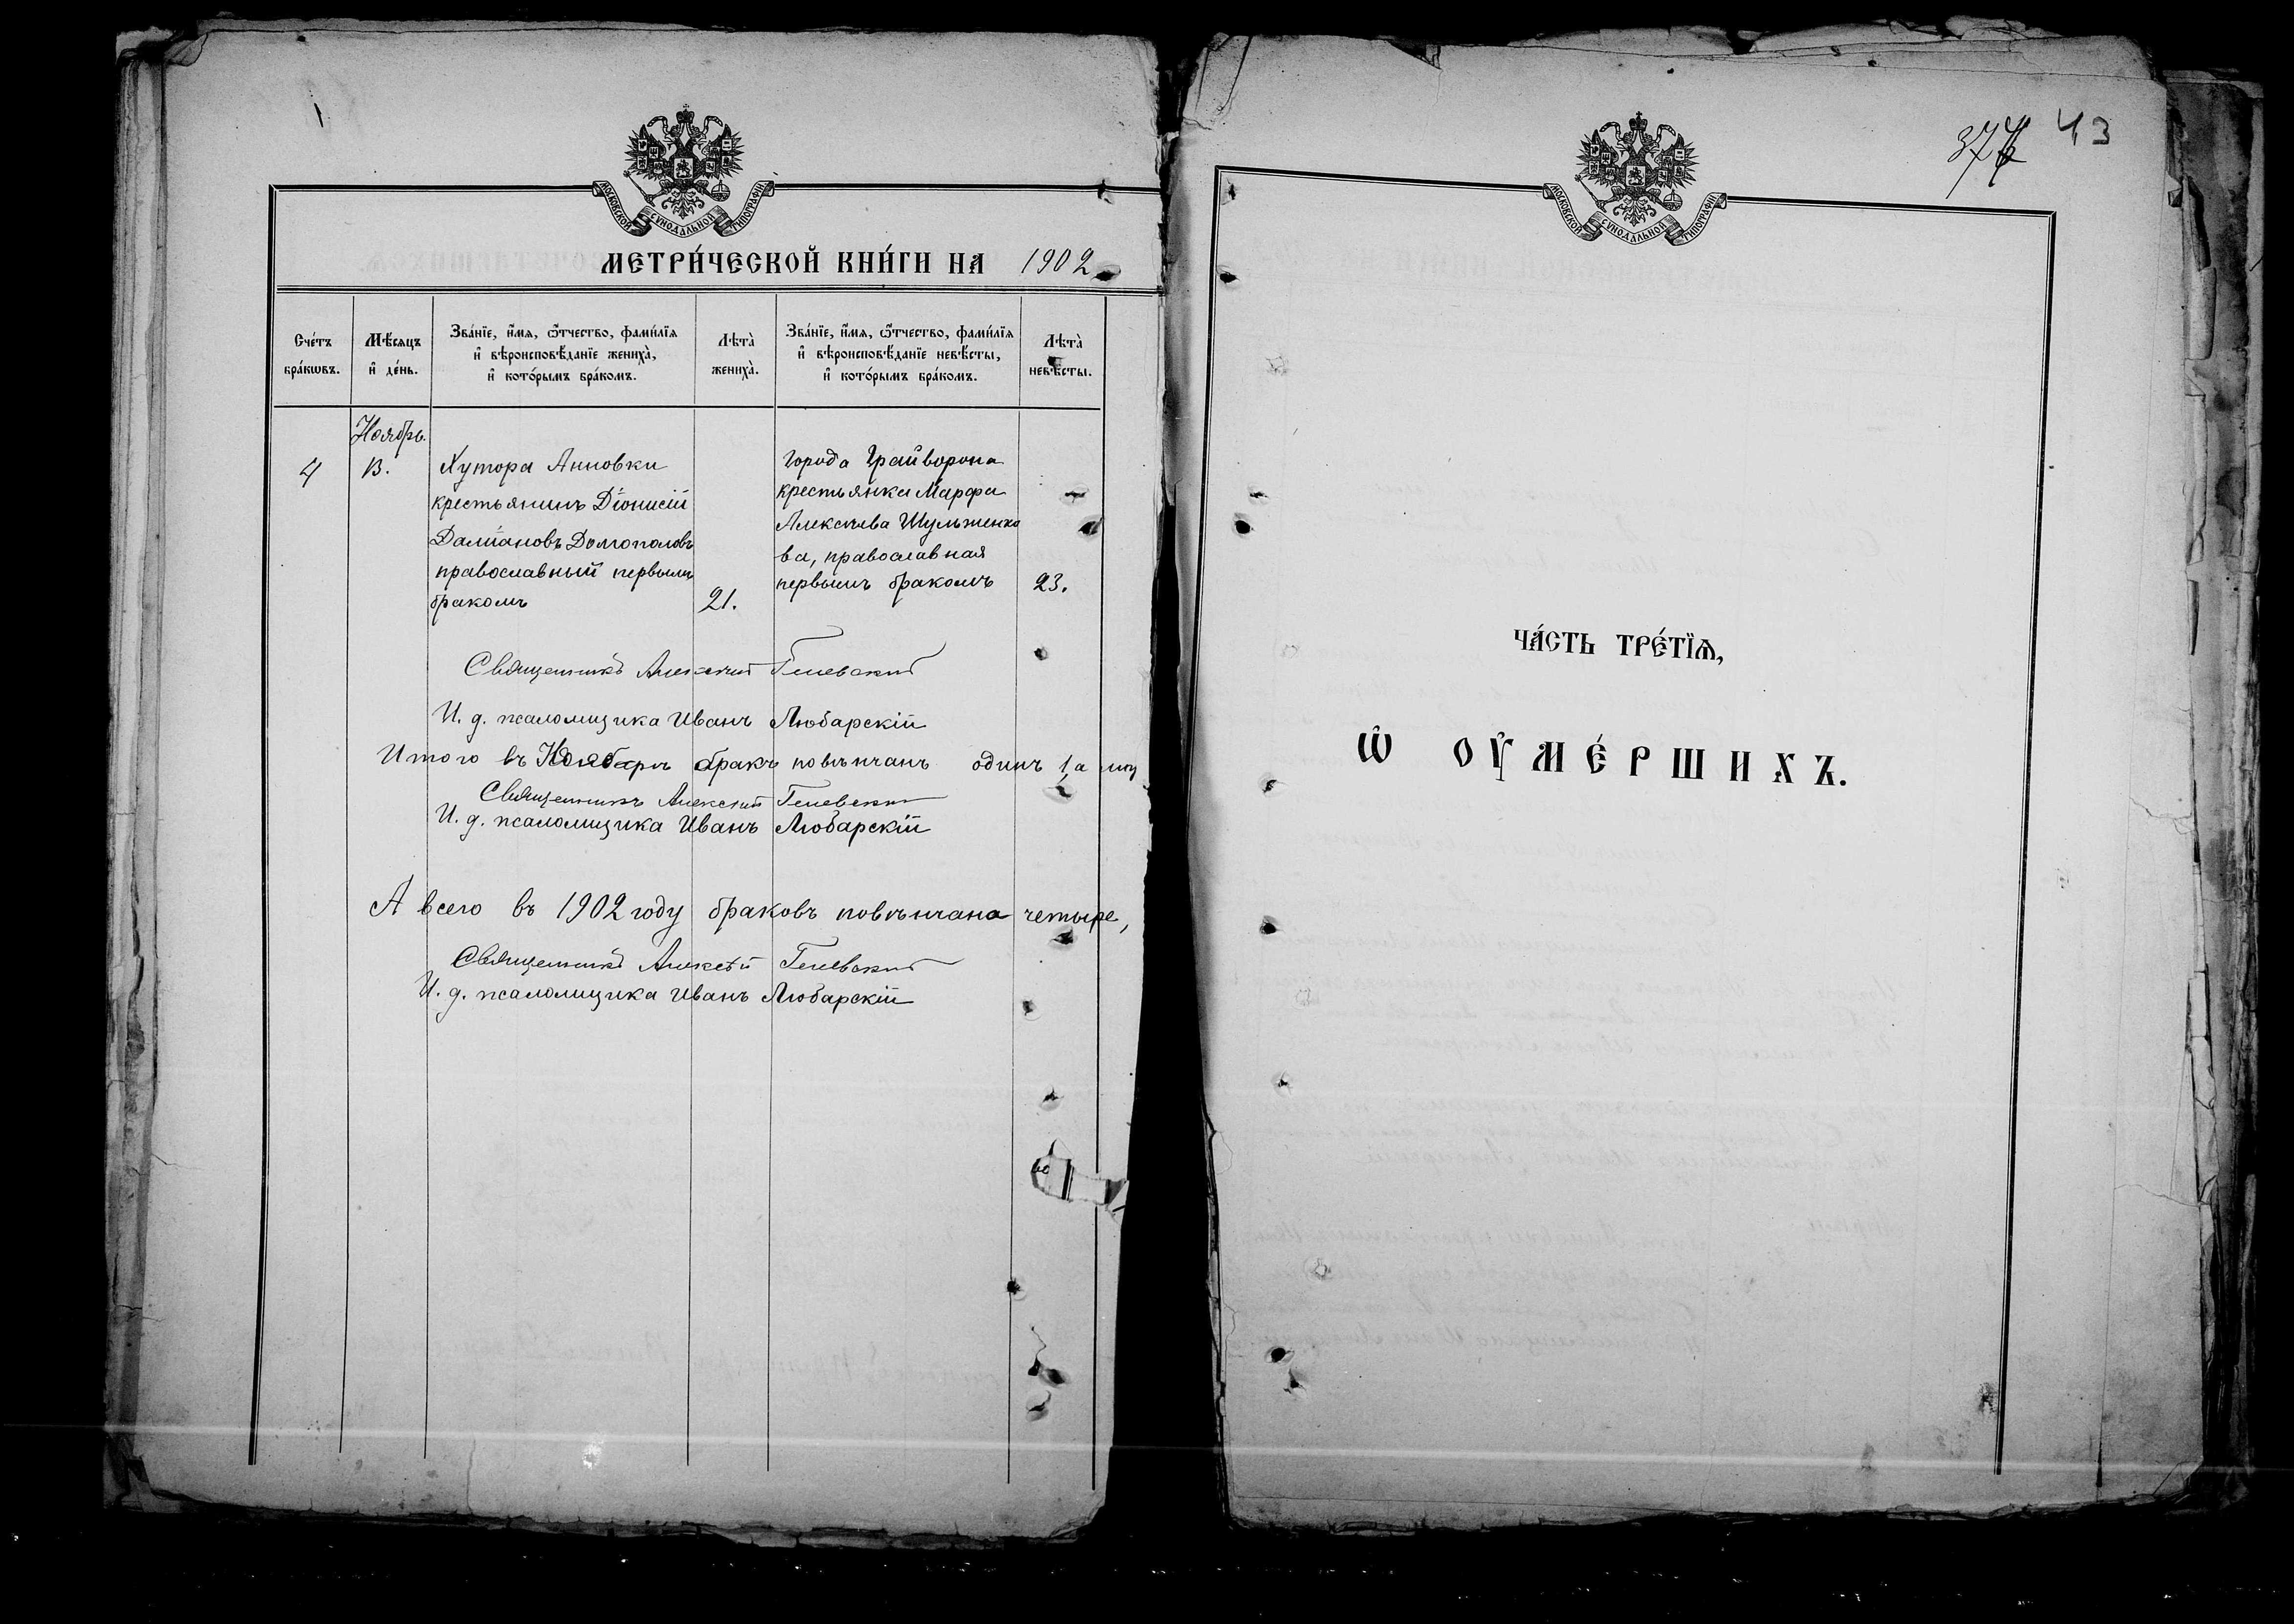 МОСКОВСКОЙ СѴНОДАЛЬНОЙ ТИПОГРАФІИ
МЕТРИ́ЧЕСКОЙ КНИ́ГИ НА 1902
Сче́тъ бра́кѡвъ.
Мѣ́сяцъ и҆ де́нь.
Зва́нїе, и҆́мѧ, ѻ҆́тчество, фами́лїѧ
и҆ вѣроисповѣ́данїе женихà,
и҆ кото́рымъ бра́комъ.
Лѣтà женихà.
Зва́нїе, и҆́мѧ, ѻ҆́тчество, фами́лїѧ
и҆ вѣроисповѣ́данїе невѣ́сты,
и҆ кото́рымъ бра́комъ.
Лѣтà невѣ́сты.
Ноябрь.
4
13.
Хутора Анновки
крестьянинъ Діонисій
Даміановъ Долгополовъ
православный первымъ
бракомъ
21.
города Грайворона
крестьянка Марфа
Алексѣева Шульженко
ва, православная
первымъ бракомъ
23.
Священникъ Алексій
И. д. псаломщика Иванъ Любарскій
Итого въ Ноябрѣ бракъ повѣнчанъ одинъ 1
Священникъ Алексій
И. д. псаломщика Иванъ Любарскій
А всего въ 1902 году браковъ повѣнчано четыре,
Священникъ Алексѣй
И. д. псаломщика Иванъ Любарскій
43
МОСКОВСКОЙ СѴНОДАЛЬНОЙ ТИПОГРАФІИ
ЧА́СТЬ ТРЕ́ТЇѦ,
Ѡ҆ ОУ҆МЕ́РШИХЪ.